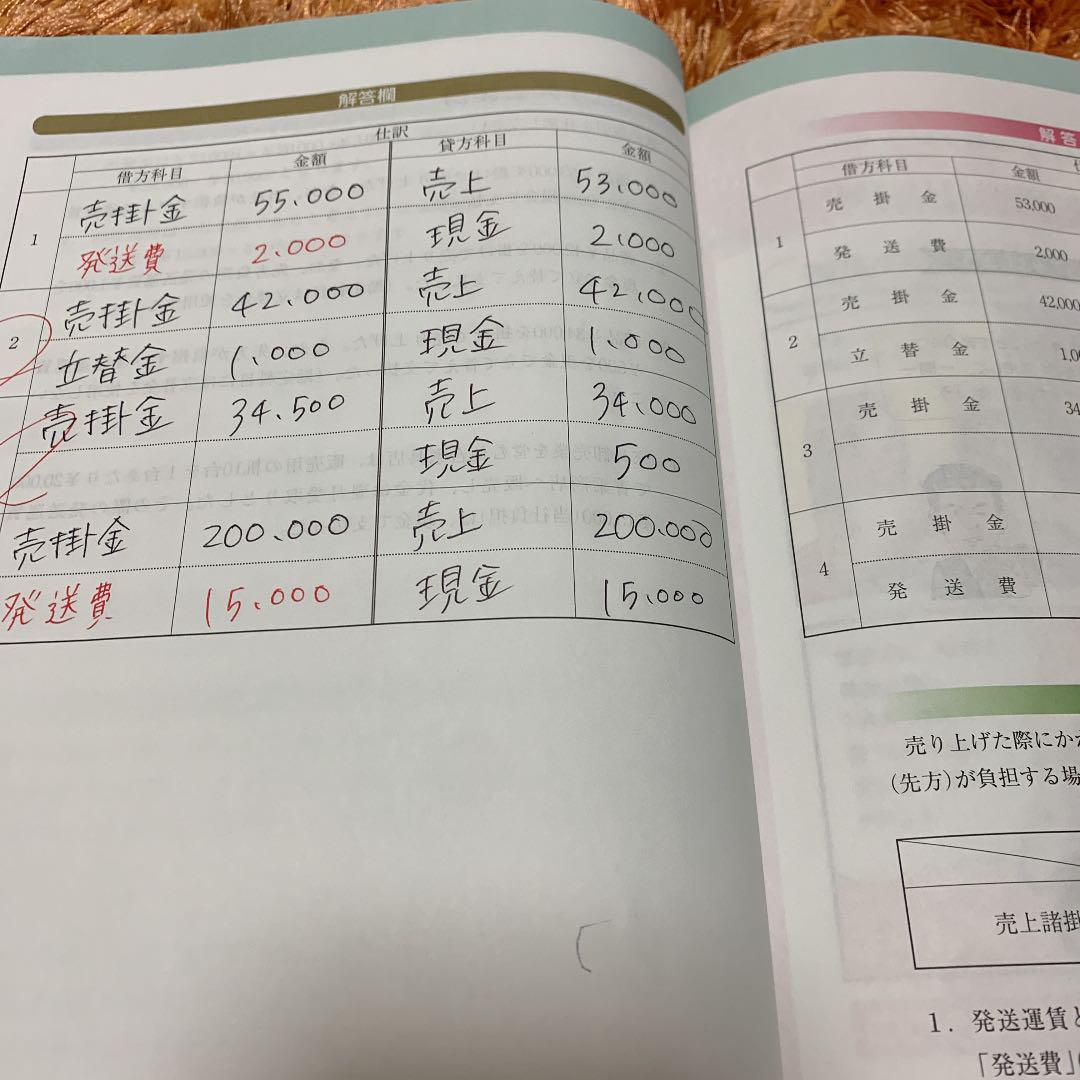 解答欄
仕訳
借方科目 金額 貸方科目 金額
1 売掛金 55.000 売上 53.000
発送費 2.000 現金 2.000
2 売掛金 42.000 売上 42.000
立替金 1.000 現金 1.000
売掛金 34.500 売上 34.000
現金 500
売掛金 200.000 売上 200.000
発送費 15.000 現金 15.000
解答
借方科目 金額
1 売掛金 53,000
発送費 2,000
2 売掛金 42,000
立替金
3 売掛金
4 売掛金
発送費
売り上げた際にか
(先方)が負担する場
売上諸掛
1．発送運賃と
「発送費」